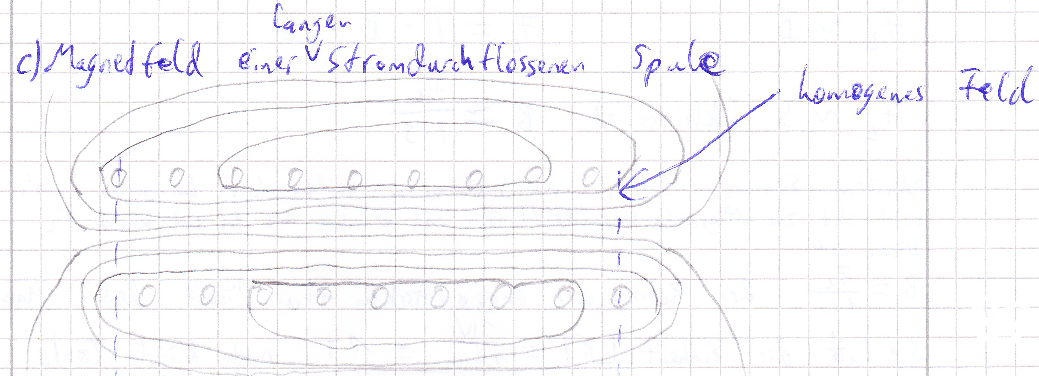 c) Magnetfeld einer langen Stromdurchflossenen Spule
homogenes Feld